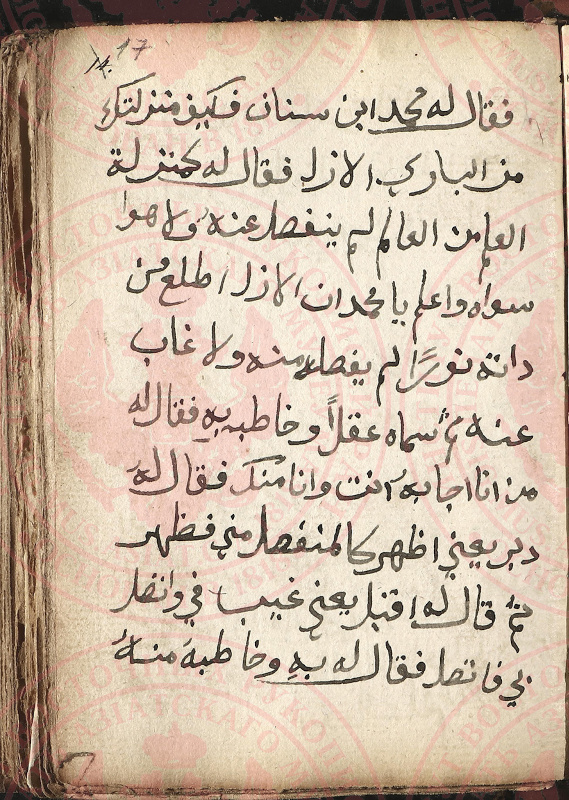 17
14.
فقال له محمد ابن سنان فكيف منزلتك
من الباري الازل فقال له كمنزلة
العلم من العالم لم ينفصل عنه ولا هوا
سواه واعلم يا محمد ان الازل اطلع من
داته نورًا لم يفصله منه ولا غاب
عنه ثم سماه عقلاً وخاطبه به فقال له
من انا اجابه انت وانا منك فقال له
دبر يعني اظهر كالمنفصل مني فظهر
ثم قال له اقبل يعني غيب في واتصل
بي فاتصل فقال له به وخاطبه منه